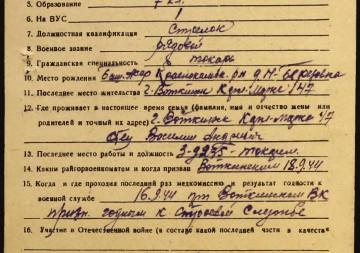 5. Образование 7 кл.
6. На ВУС 1
7. Должностная квалификация Стрелок
8. Военное звание рядовой
9. Гражданская специальность токарь
10. Место рождения Баш. АССР Краснокамск. р-н д. Н-
11. Последнее место жительства г. Воткинск Карл-Маркса 147
12. Где проживает в настоящее время семья (фамилия, имя и отчество жены или
родителей и точный их адрес) г. Воткинск Карл-Маркса 47
отец Василий Андреевич
13. Последнее место работы и должность З-д 235 - токарем.
14. Каким райгорвоенкоматом и когда призван Воткинским 18.9.44
15. Когда и где проходил последний раз медкомиссию и результат годности к
военной службе 16.9.44 при Воткинском ВК
призн. годным к строевой службе
16. Участие в Отечественной войне (в составе какой последней части в качестве